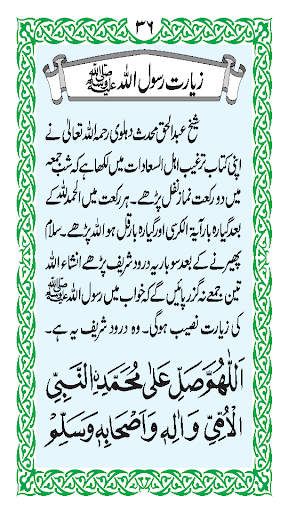 ۳۶
زیارت رسول اللہ ﷺ
شیخ عبدالحق محدث دہلوی رحمۃ اللہ تعالیٰ نے
اپنی کتاب ترغیب اہل السعادات میں لکھا ہے کہ شب جمعہ
میں دو رکعت نماز نفل پڑھے۔ ہر رکعت میں الحمد للہ کے
بعد گیارہ بار آیۃ الکرسی اور گیارہ بار قل ہو اللہ پڑھے۔ سلام
پھیرنے کے بعد سو بار یہ درود شریف پڑھے انشاء اللہ
تین جمعے نہ گزر پائیں گے کہ خواب میں رسول اللہ ﷺ
کی زیارت نصیب ہوگی۔ وہ درود شریف یہ ہے۔
اَللّٰهُمَّ صَلِّ عَلٰى مُحَمَّدِ ۨالنَّبِيِّ
الْاُمِّيِّ وَاٰلِهٖ وَاَصْحَابِهٖ وَسَلِّمْ
۳۶